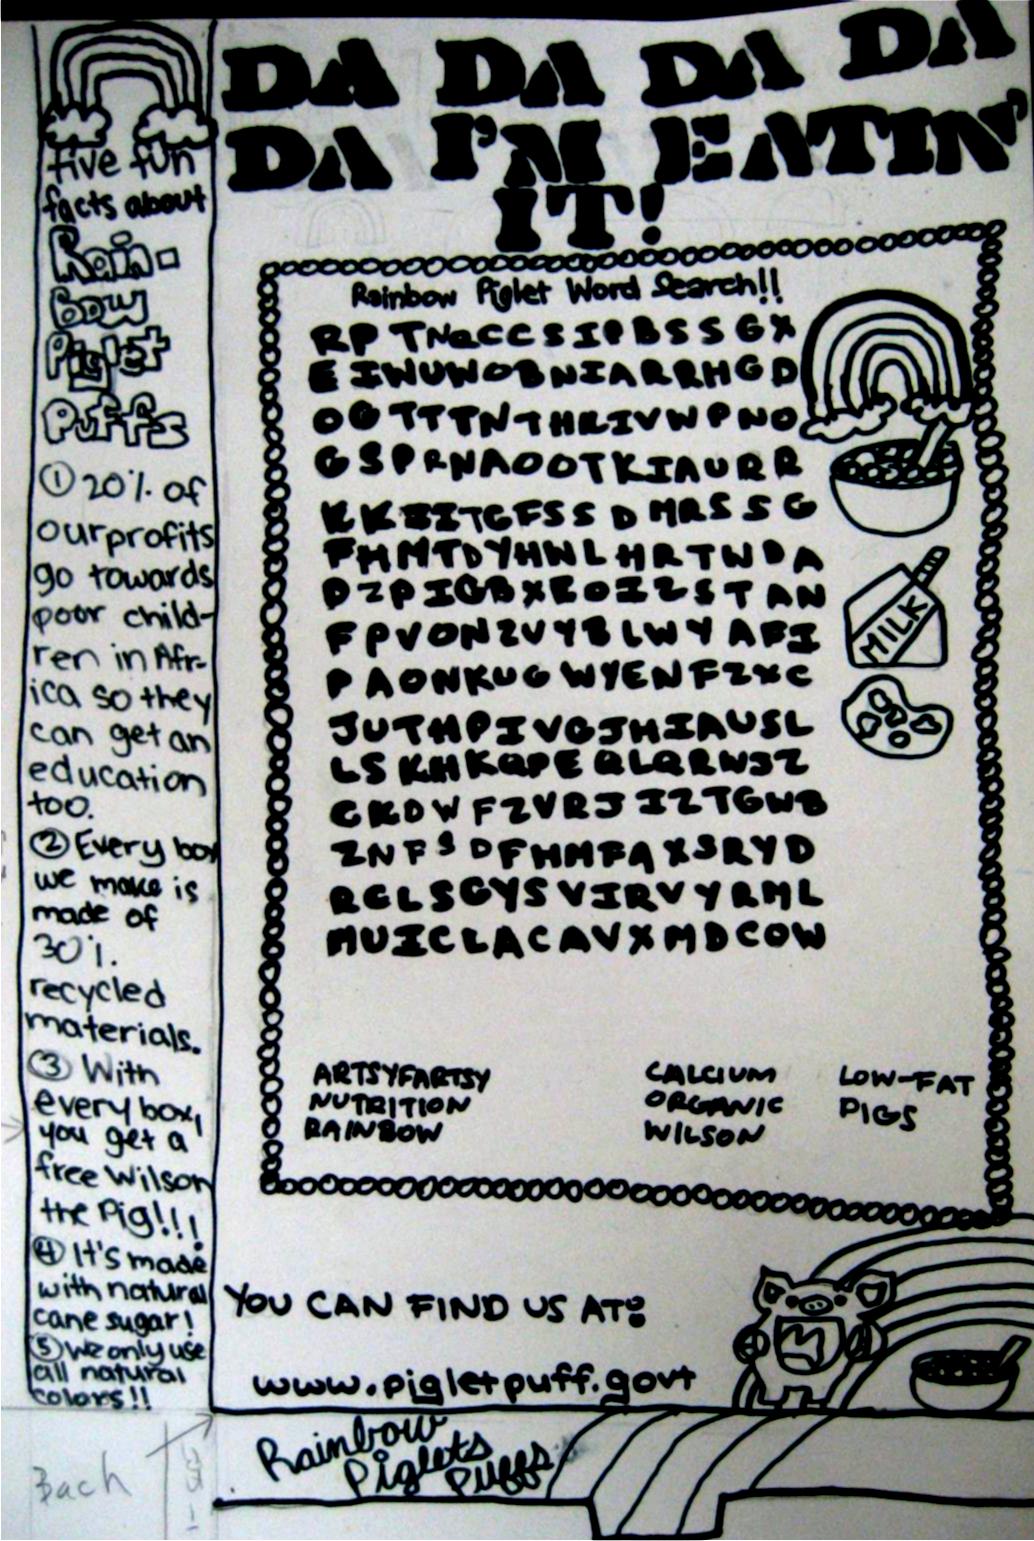 DA DA DA DA
DA I'M EATIN'
IT!
five fun
facts about
Rain-
Bow
Piglet
Puffs
① 20% of
our profits
go towards
poor child-
ren in Afr-
ica so they
can get an
education
too.
② Every box
we make is
made of
30%
recycled
materials.
③ With
every box,
you get a
free Wilson
the Pig!!!
④ It's made
with natural
cane sugar!
⑤ We only use
all natural
colors!!
Rainbow Piglet Word Search!!
RPTNQCCSIPBSSGX
EIWUWOBNIARRHGD
OGTTTNTHRIVWPNO
GSPRNAOOTKIAURR
KKIITGFSSDMRSSG
FHMTDYHWLHRTWDA
DZPIGBXEOIZSTAN
FPVONZVYBLWYAFI
PAONKUGWYENFZXC
JUTHPIVGJHIAUSL
LSKHKQPEQLQRWJZ
CKDWFZVRJIZTGWB
ZNFSDFHMFAXSRYD
RGLSGYSVIRVYRML
MUICLACAVXMDCOW
ARTSYFARTSY
NUTRITION
RAINBOW
CALCIUM
ORGANIC
WILSON
LOW-FAT
PIGS
MILK
YOU CAN FIND US AT:
www.pigletpuff.govt
Rainbow
Piglets
Puffs
Back